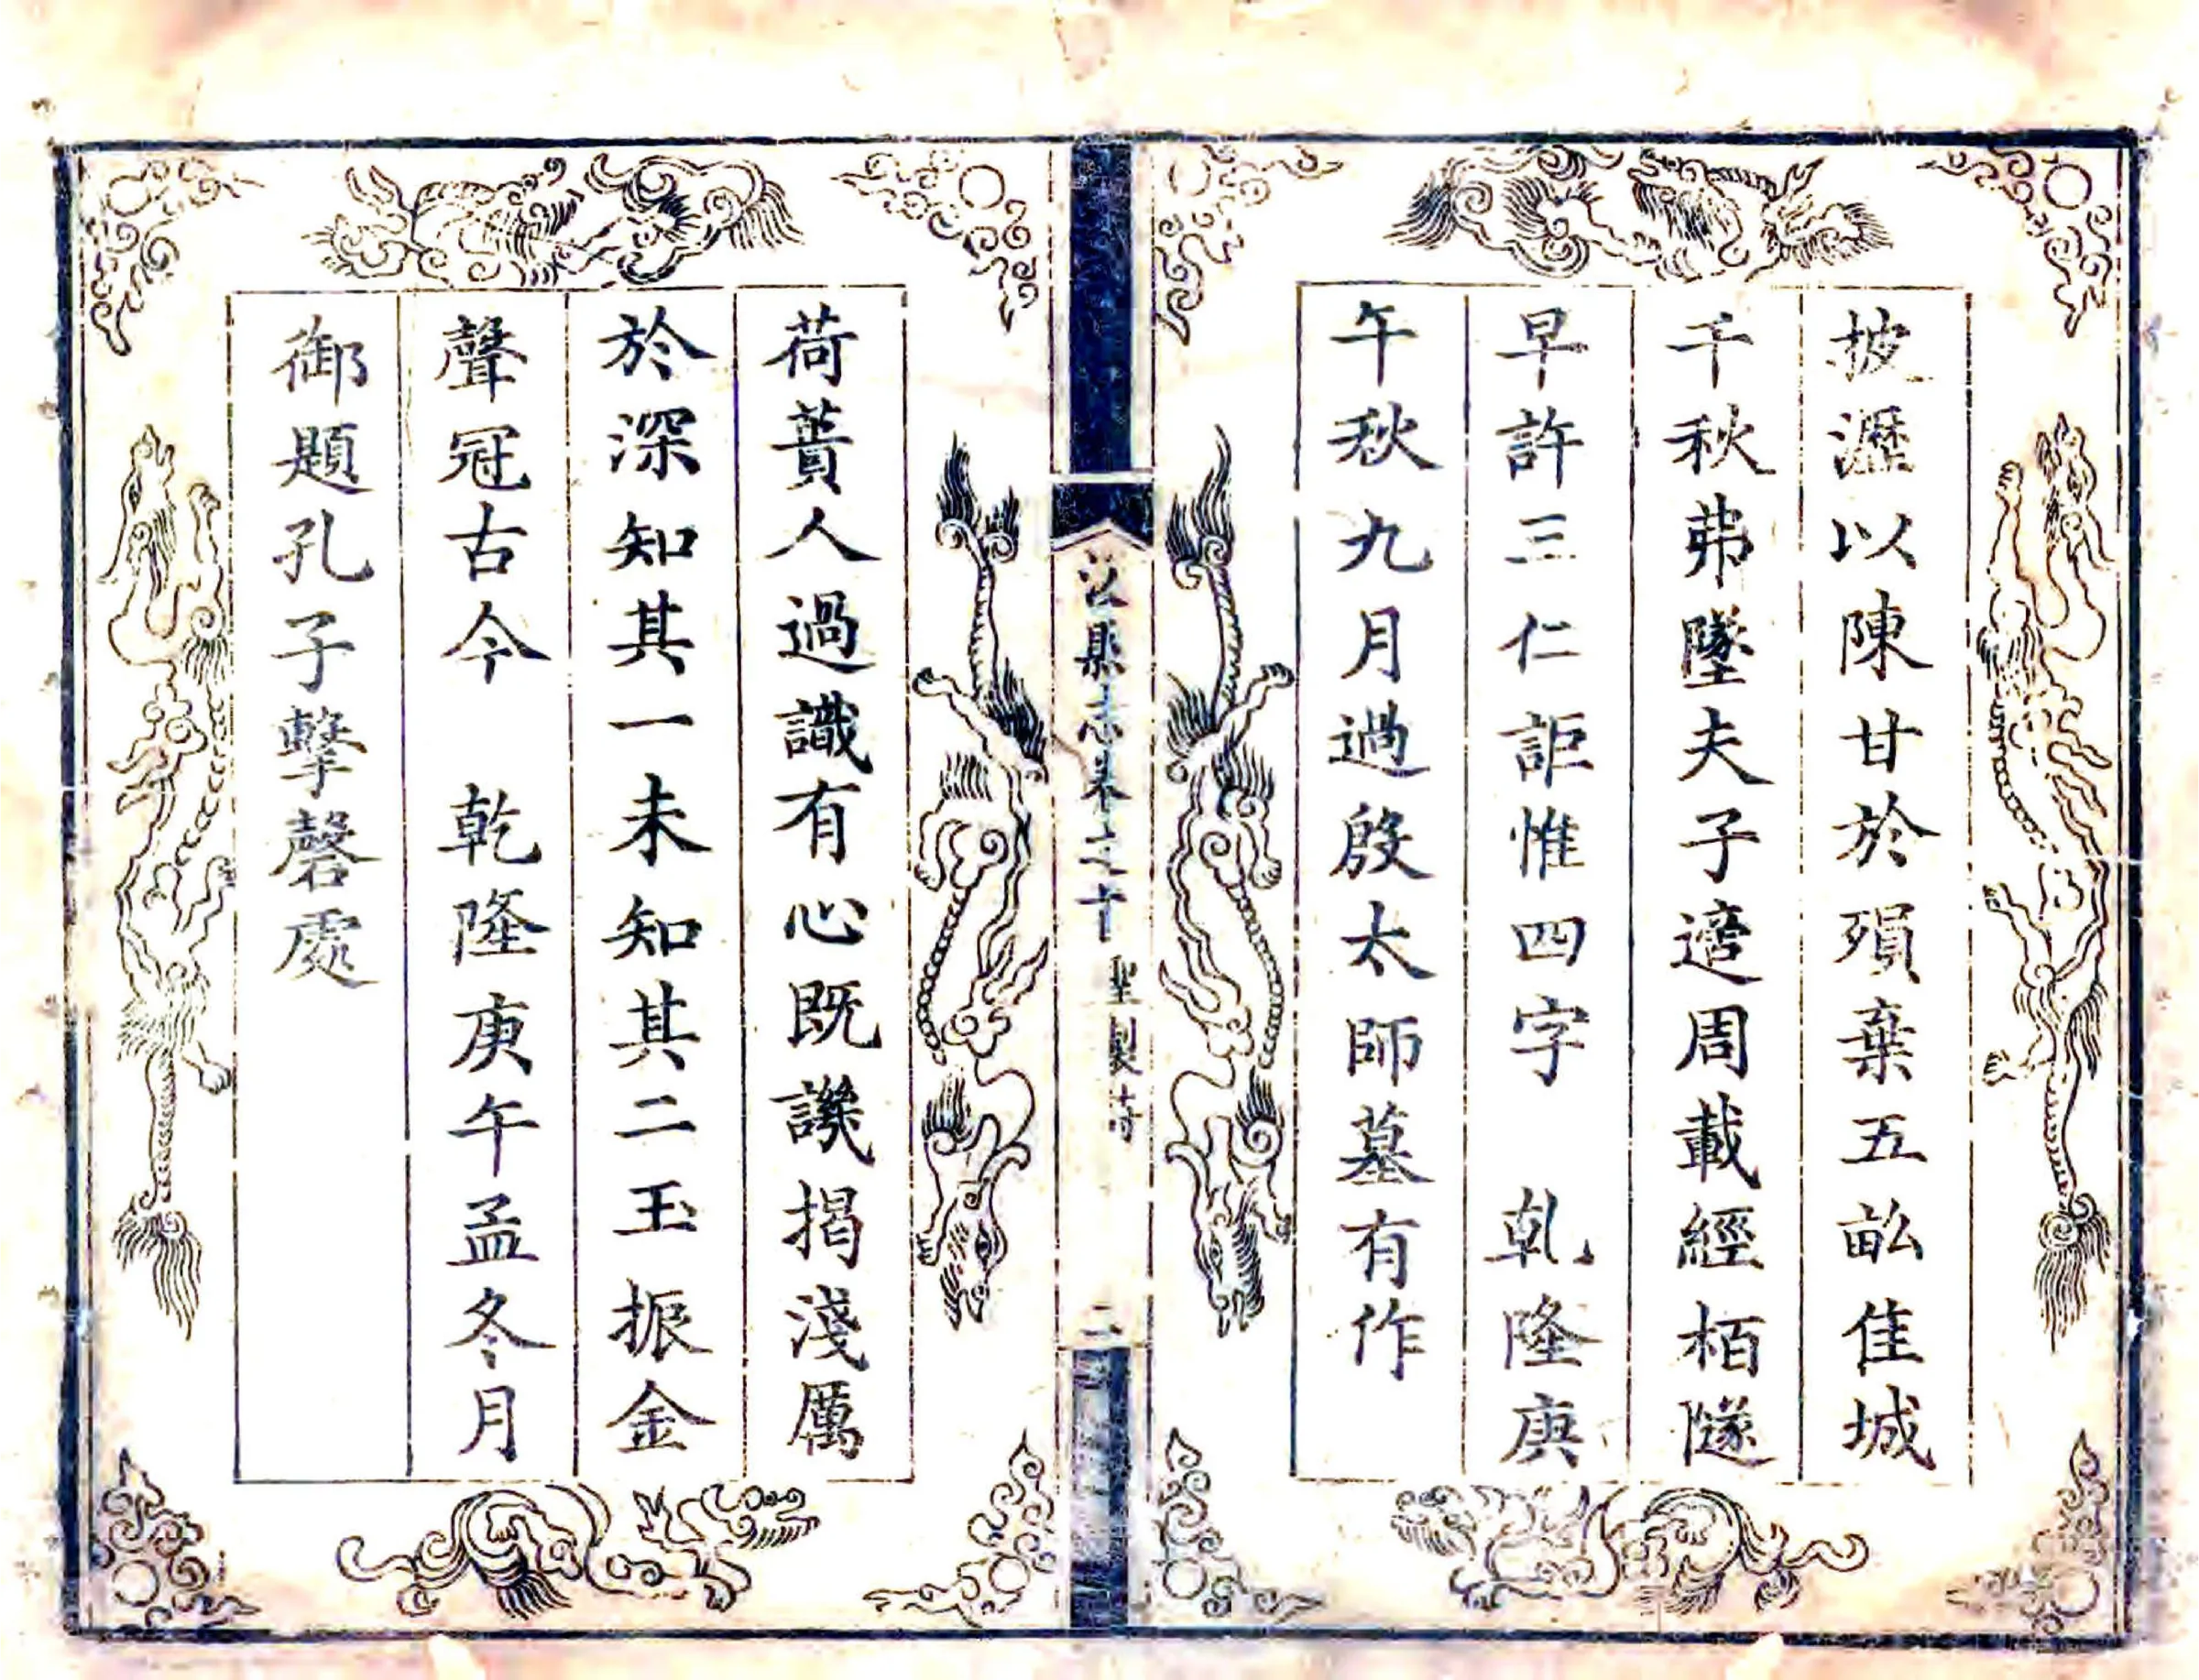 披瀝以陳甘於殞棄五畝佳城
千秋茀墜夫子適周載經栢隧
早許三仁詎惟四字　乾隆庚
午秋九月過殷太師墓有作
縣志卷之十　聖製詩　二
荷蕢人過識有心既譏揭淺厲
於深知其一未知其二玉振金
聲冠古今　乾隆庚午孟冬月
御題孔子擊磬處